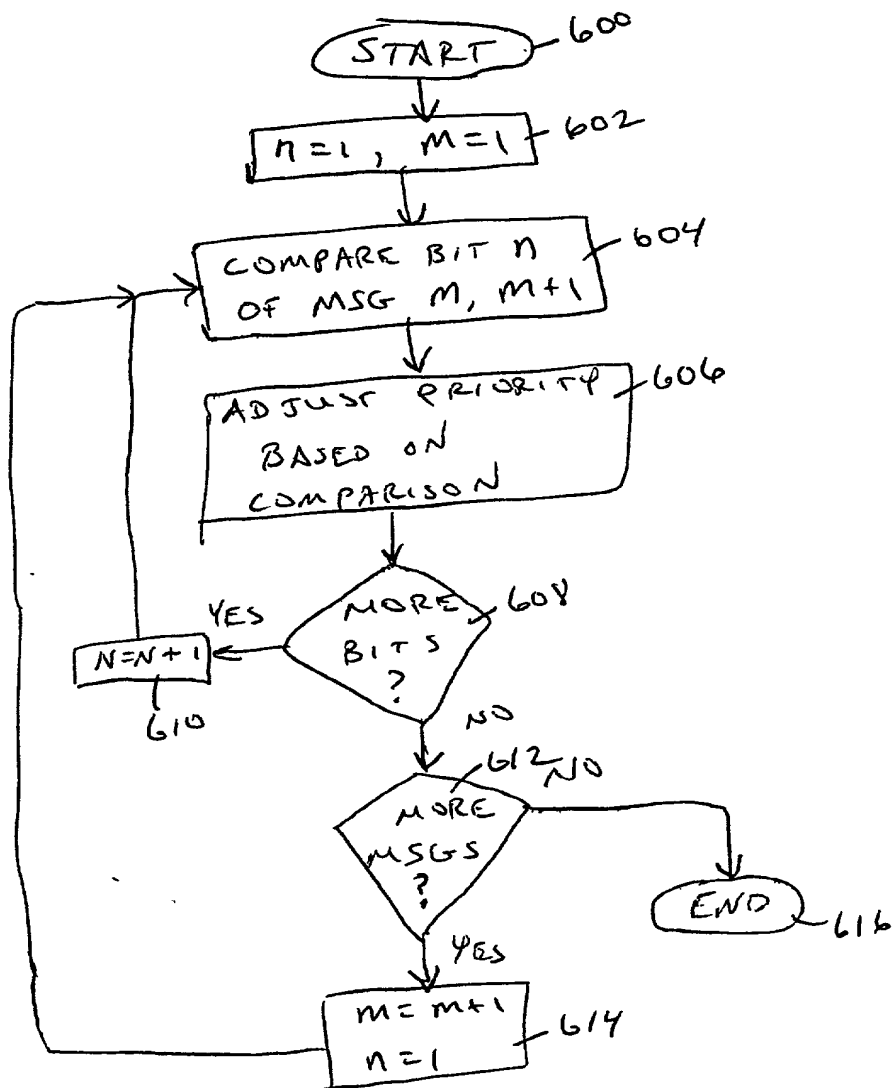 START
600
n=1, m=1
602
COMPARE BIT n
OF MSG m, m+1
604
ADJUST PRIORITY
BASED ON
COMPARISON
606
MORE
BITS
?
608
YES
N=N+1
610
NO
612
NO
MORE
MSGS
?
END
616
YES
m=m+1
n=1
614